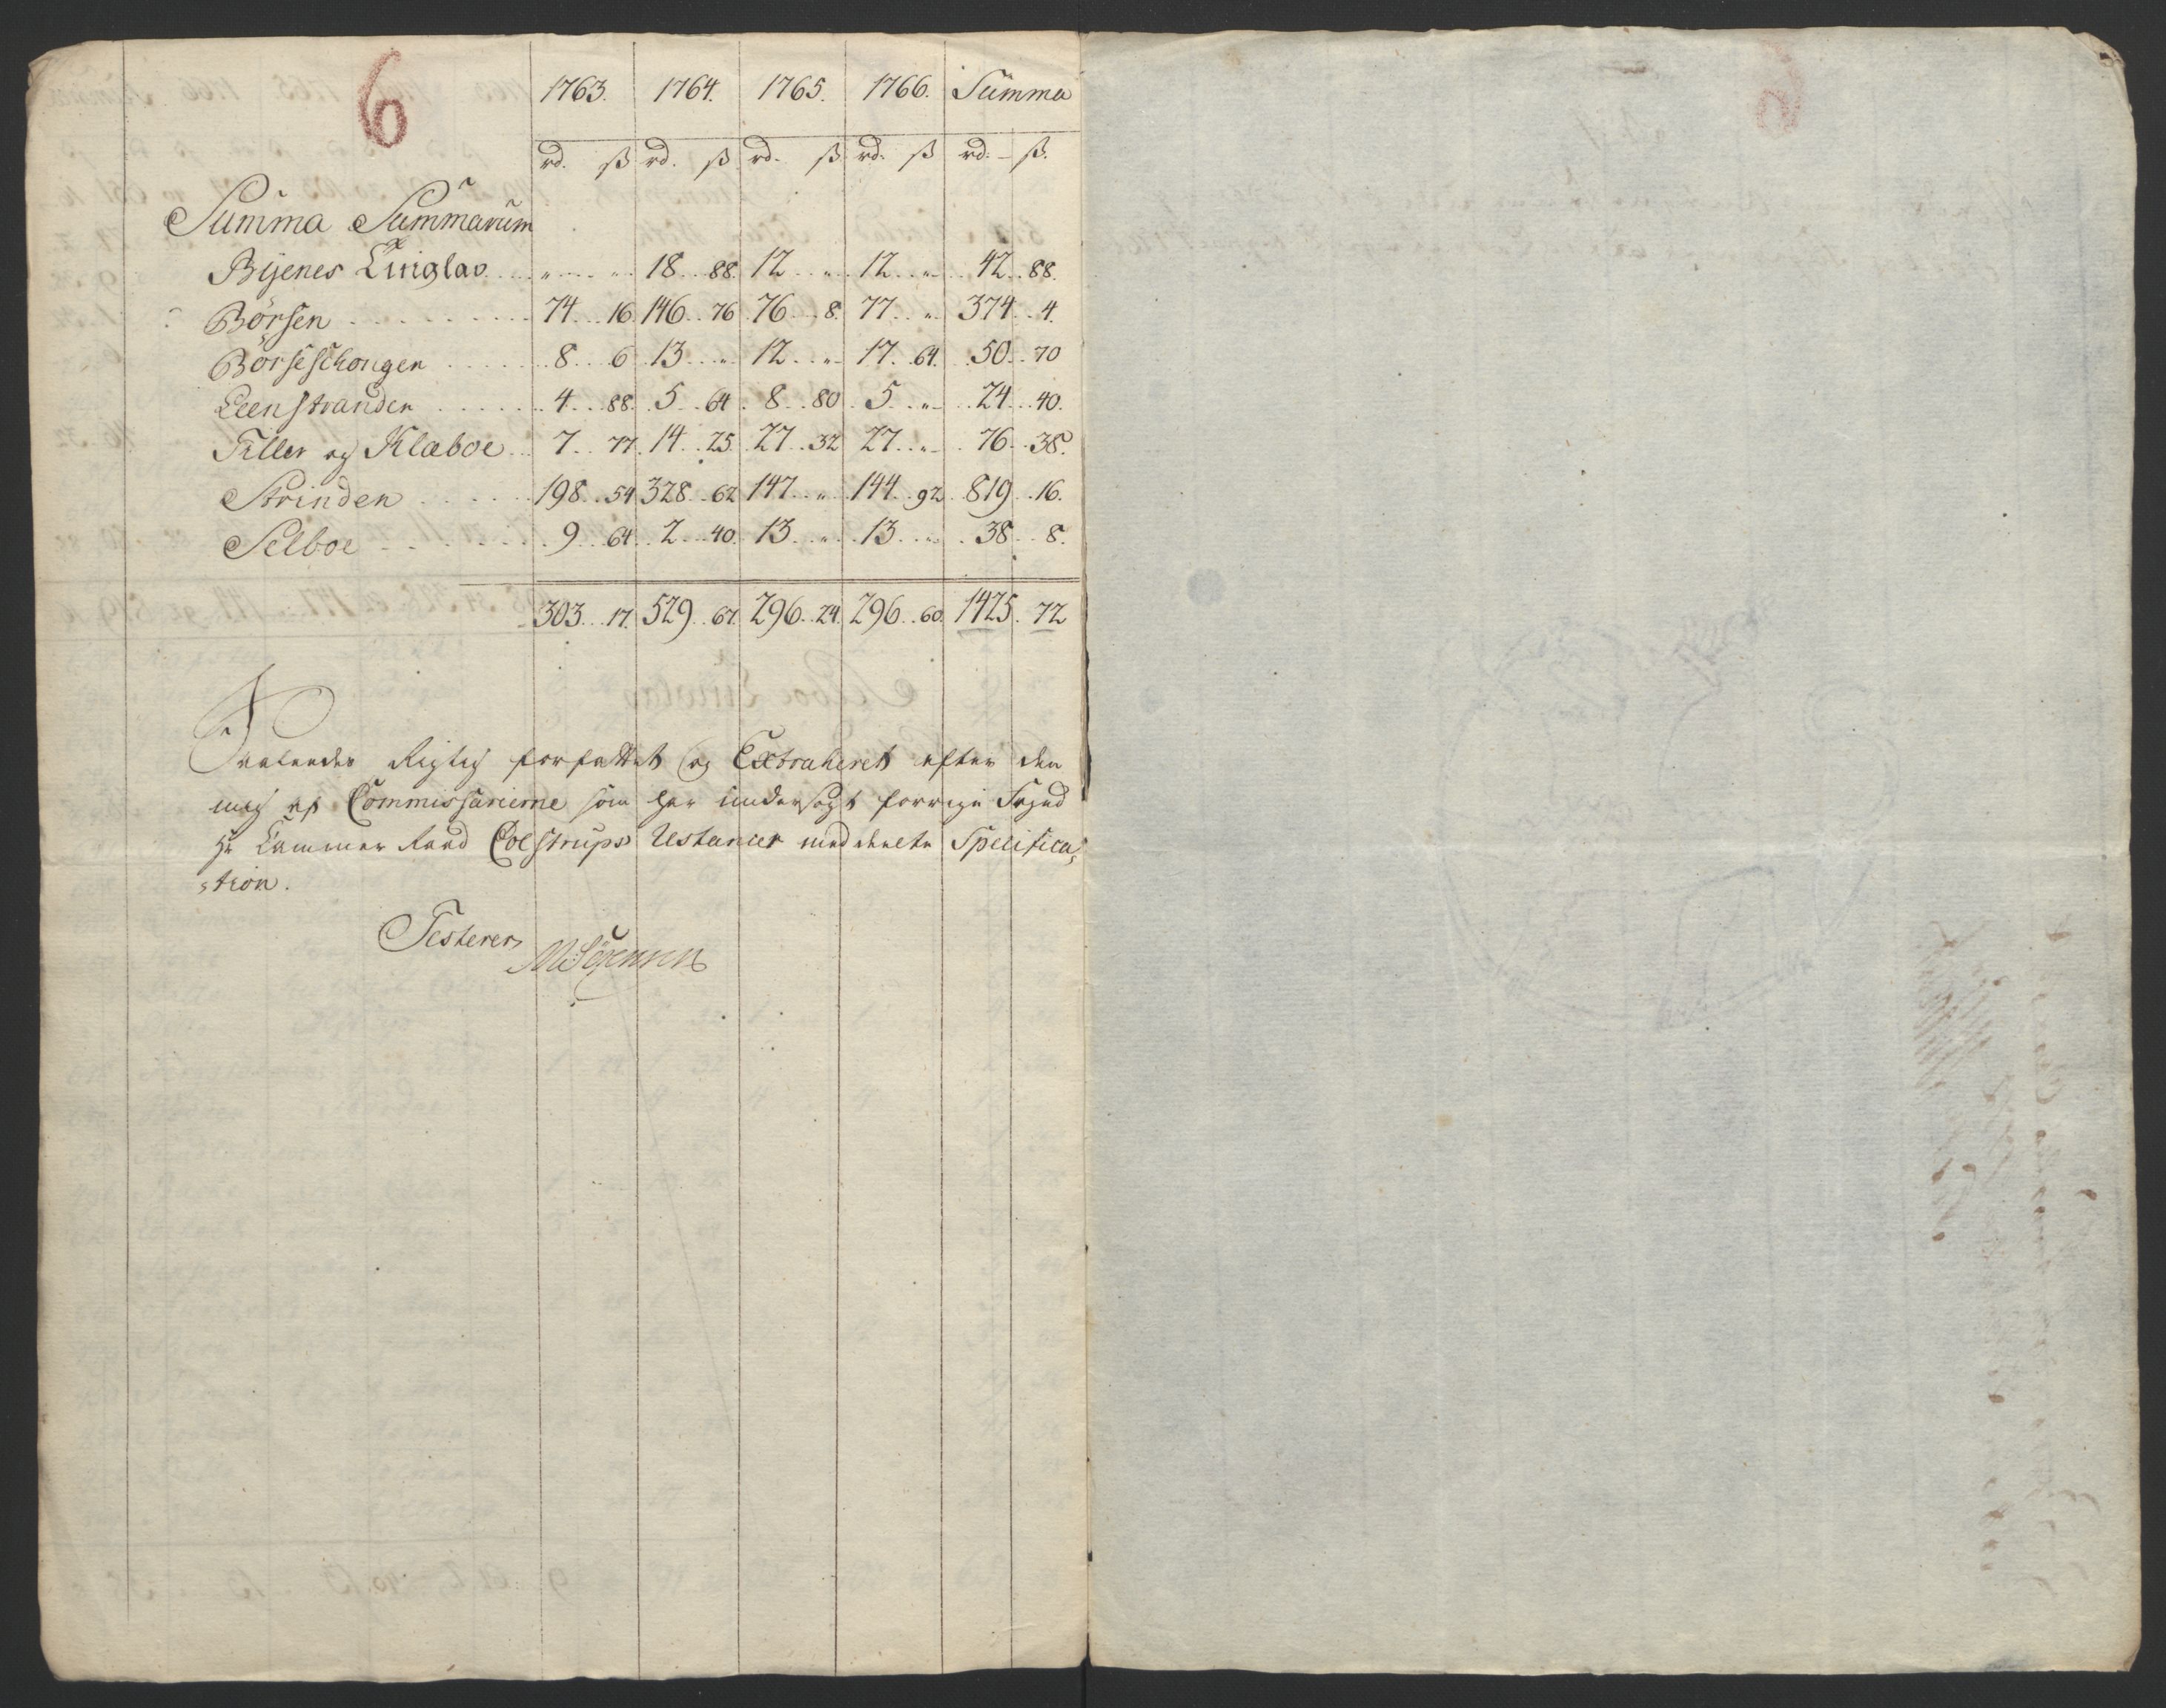 6
1763. 1764. 1765. 1766. Summa
rd. ß rd. ß rd. ß rd. ß rd. ß.
Summa Summarum
Byenes Tinglav .... „ .... „ 18 .. 88. 12 .. „ 12 .. „ 42 .. 88.
Börsen .... 74 .. 16 146 .. 76 76 .. 8. 77 .. „ 374 .. 4.
Börseschougen .... 8 .. 6 13 .. „ 12 .. „ 17 .. 64. 50 .. 70
Leenstranden .... 4 .. 88. 5 .. 64 8 .. 80 5 .. „ 24 .. 40.
Tiller og Klæboe .. 7 .. 77. 14 .. 25 27 .. 32 27 .. „ 76 .. 38.
Strinden .... 198 .. 54 328 .. 62 147 .. „ 144 .. 92 819 .. 16.
Selboe .... 9 .. 64. 2 .. 40. 13 .. „ 13 .. „ 38 .. 8.
303 .. 17. 529 .. 67. 296 .. 24. 296 .. 60. 1425 .. 72
Saaledes Rigtig forfattet og Extraheret efter den
mig af Commissarierne som har undersøgt forrige Foged
Hr Cammer Raad Collstrups Restancer meddeelte Specifica,
,tion.
Testerer